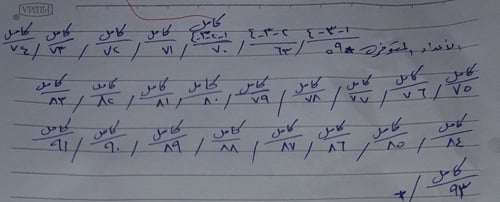 كامل
١-٣-٤ / ٢-٣-٤ / ١-٢-٣-٤ / كامل / كامل / كامل / كامل
الأعداد المتوفرة * ٥٩ / ٦٣ / ٧٠ / ٧١ / ٧٢ / ٧٣ / ٧٤
كامل / كامل / كامل / كامل / كامل / كامل / كامل / كامل / كامل
٧٥ / ٧٦ / ٧٧ / ٧٨ / ٧٩ / ٨٠ / ٨١ / ٨٢ / ٨٣
كامل / كامل / كامل / كامل / كامل / كامل / كامل / كامل
٨٤ / ٨٥ / ٨٦ / ٨٧ / ٨٨ / ٨٩ / ٩٠ / ٩١
كامل
٩٣ / *
PRIMA